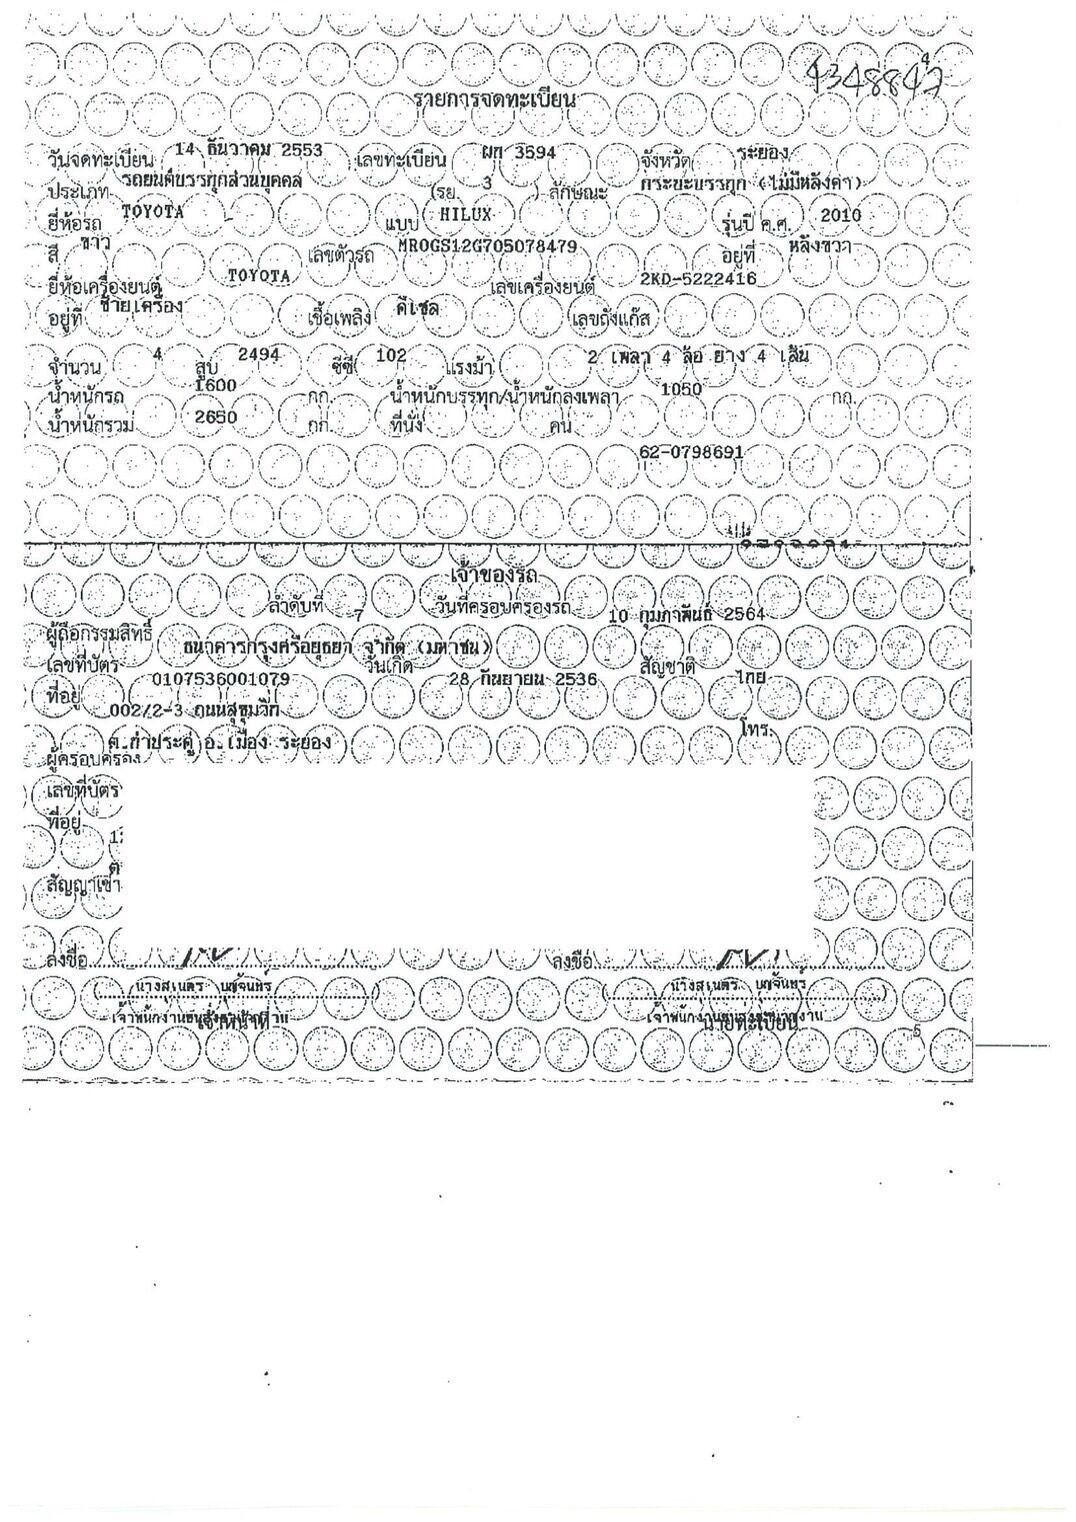 4348847
รายการจดทะเบียน
วันจดทะเบียน 14 ธันวาคม 2553 เลขทะเบียน ผก 3594 จังหวัด ระยอง
ประเภท รถยนต์บรรทุกส่วนบุคคล (รย. 3 ) ลักษณะ กระบะบรรทุก (ไม่มีหลังคา)
ยี่ห้อรถ TOYOTA แบบ HILUX รุ่นปี ค.ศ. 2010
สี ขาว เลขตัวรถ MR0GS12G705078479 อยู่ที่ หลังขวา
ยี่ห้อเครื่องยนต์ TOYOTA เลขเครื่องยนต์ 2KD-5222416
อยู่ที่ ซ้ายเครื่อง เชื้อเพลิง ดีเซล เลขถังแก๊ส
จำนวน 4 สูบ 2494 ซีซี 102 แรงม้า 2 เพลา 4 ล้อ ยาง 4 เส้น
น้ำหนักรถ 1600 กก. น้ำหนักบรรทุก/น้ำหนักลงเพลา 1050 กก.
น้ำหนักรวม 2650 กก. ที่นั่ง คน
62-0798691
เจ้าของรถ
ลำดับที่ 7 วันที่ครอบครองรถ 10 กุมภาพันธ์ 2564
ผู้ถือกรรมสิทธิ์ ธนาคารกรุงศรีอยุธยา จำกัด (มหาชน)
เลขที่บัตร 0107536001079 วันเกิด 28 กันยายน 2536 สัญชาติ ไทย
ที่อยู่ 002/2-3 ถนนสุขุมวิท
ต.ท่าประดู่ อ.เมือง ระยอง โทร.
ผู้ครอบครอง
เลขที่บัตร
ที่อยู่
ต
สัญญาเช่า
ลงชื่อ ลงชื่อ
(นางสุเนตร บุญจันทร์) (นางสุเนตร บุญจันทร์)
เจ้าหน้าที่ นายทะเบียน
5